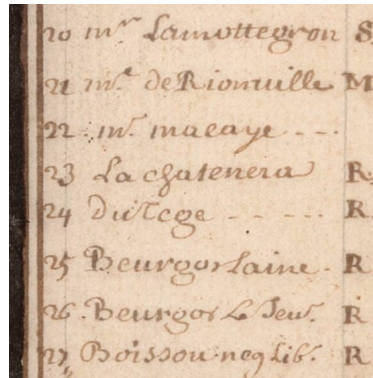 20 mr. Lamottegron S
21 me. de Rionville M
22 mr. macaye - - -
23 La chatenera R.
24 - - - - R.
25 Beurgos laine. R
26. Beurgos Le Jeur. R
27, Boisson neg Lib. R